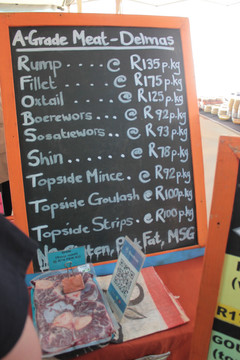 A-Grade Meat-Delmas
Rump ..... @ R135 p.kg
Fillet ..... @ R175 p.kg
Oxtail .... @ R125 p.kg
Boerewors .. @ R92 p.kg
Sosatiewors .. @ R93 p.kg
Shin ..... @ R78 p.kg
Topside Mince . @ R92 p.kg
Topside Goulash @ R100 p.kg
Topside Strips . @ R100 p.kg
Fat, MSG